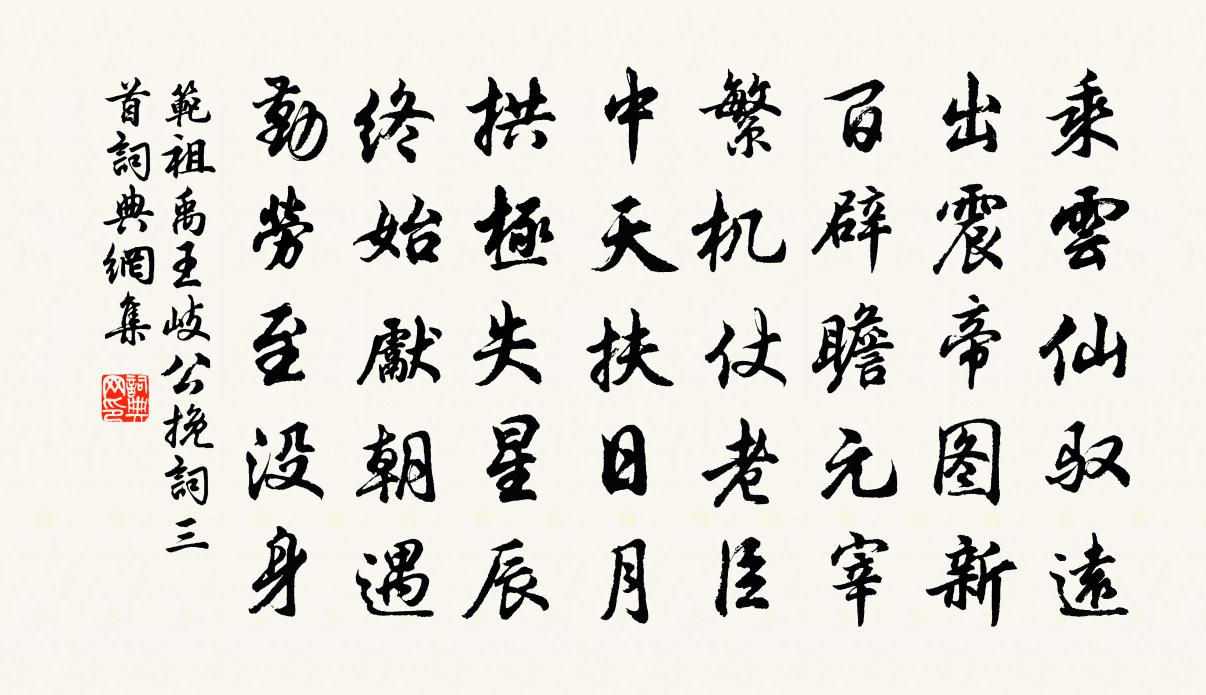 乘雲仙馭遠
出震帝图新
百辟瞻元宰
繁机仗老臣
中天扶日月
拱極失星辰
終始獻朝遇
勤勞至没身
範祖禹王岐公挽詞三
首詞典網集
詞典
网印